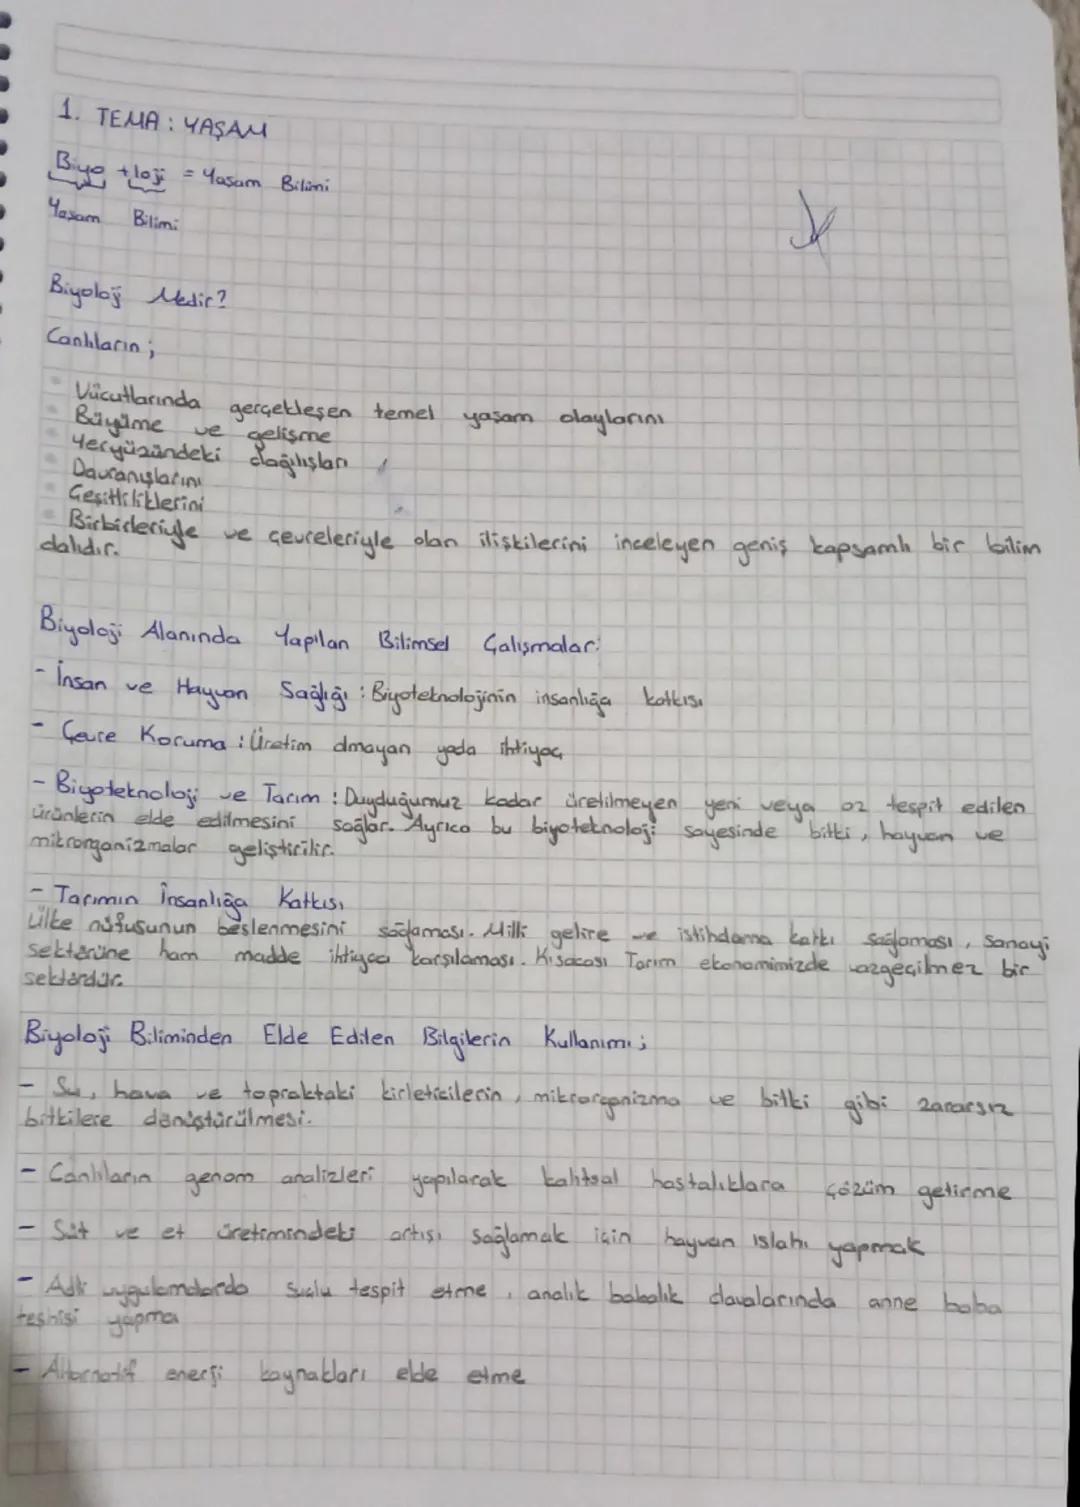 1. TEMA : YAŞAM
Biyo + loji = Yaşam Bilimi
Yaşam Bilimi
Biyoloji Nedir?
Canlıların ;
Vücutlarında gerçekleşen temel yaşam olaylarını
Büyüme ve gelişme
Yeryüzündeki dağılışları
Davranışlarını
Çeşitliliklerini
Birbirleriyle ve çevreleriyle olan ilişkilerini inceleyen geniş kapsamlı bir bilim
dalıdır.
Biyoloji Alanında Yapılan Bilimsel Çalışmalar:
- İnsan ve Hayvan Sağlığı : Biyoteknolojinin insanlığa katkısı
- Çevre Koruma : Üretim olmayan yada ihtiyaç
- Biyoteknoloji ve Tarım : Duyduğumuz kadar üretilmeyen yeni veya az tespit edilen
ürünlerin elde edilmesini sağlar. Ayrıca bu biyoteknoloji sayesinde bitki, hayvan ve
mikrorganizmalar geliştirilir.
- Tarımın İnsanlığa Katkısı
Ülke nüfusunun beslenmesini sağlaması. Milli gelire ve istihdama katkı sağlaması, sanayi
sektörüne ham madde ihtiyacı karşılaması. Kısacası Tarım ekonomimizde vazgeçilmez bir
sektördür.
Biyoloji Biliminden Elde Edilen Bilgilerin Kullanımı ;
- Su, hava ve topraktaki kirleticilerin, mikrorganizma ve bitki gibi zararsız
bitkilere dönüştürülmesi.
- Canlıların genom analizleri yapılarak kalıtsal hastalıklara çözüm getirme
- Süt ve et üretimindeki artışı sağlamak için hayvan ıslahı yapmak
- Adli uygulamalarda suçlu tespit etme, analık babalık davalarında anne baba
teşhisi yapma
- Alternatif enerji kaynakları elde etme